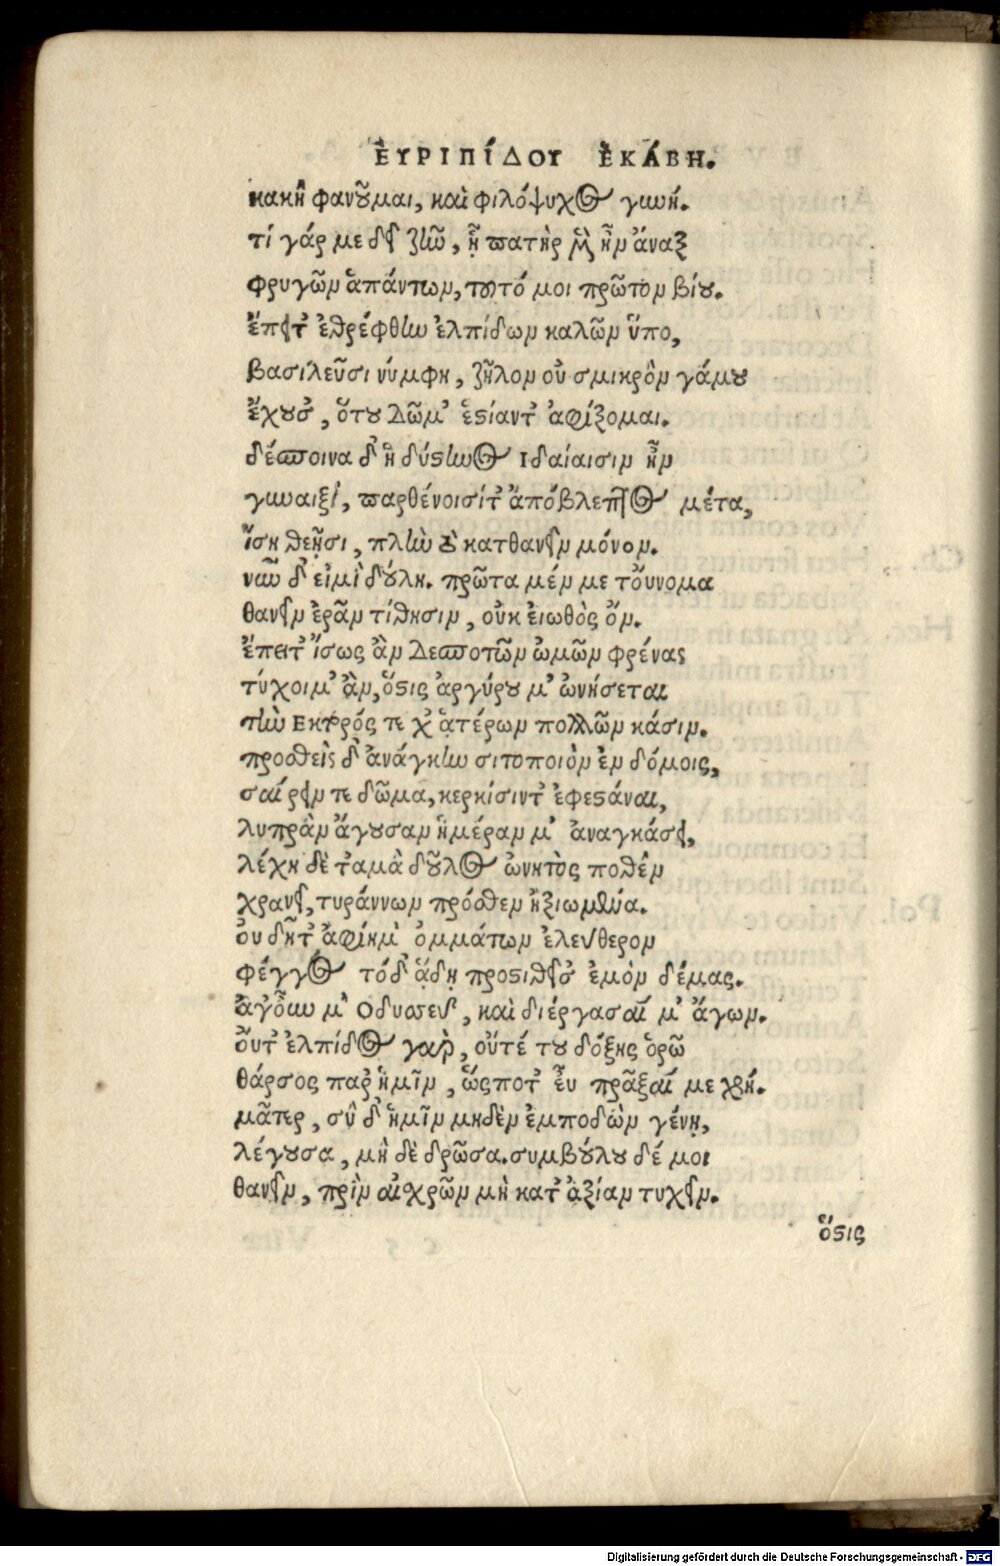 ἘΥΡΙΠΊΔΟΥ ἙΚΆΒΗ.
κακὴ φανοῦμαι, καὶ φιλόψυχος γυνή.
τί γάρ με δεῖ ζῆν, ᾗ πατὴρ μὲν ἦν ἄναξ
φρυγῶν ἁπάντων, τοῦτό μοι πρῶτον βίου.
ἔπειτ' ἐθρέφθην ἐλπίδων καλῶν ὕπο,
βασιλεῦσι νύμφη, ζῆλον οὐ σμικρὸν γάμου
ἔχουσ', ὅτου Δῶμ' ἑστίαντ' ἀφίξομαι.
δέσποινα δ' ἡ δύστηνος Ιδαίαισιν ἦν
γυναιξὶ, παρθένοισίτ' ἀπόβλεπτος μέτα,
ἴση θεῇσι, πλὴν τὸ κατθανεῖν μόνον.
νῦν δ' εἰμὶ δούλη. πρῶτα μέν με τοὔνομα
θανεῖν ἐρᾶν τίθησιν, οὐκ ἐιωθὸς ὄν.
ἔπειτ' ἴσως ἂν Δεσποτῶν ὠμῶν φρένας
τύχοιμ' ἂν, ὅστις ἀργύρου μ' ὠνήσεται
τὴν Εκτρός τε χ' ἁτέρων πολλῶν κάσιν.
προσθεὶς δ' ἀνάγκην σιτοποιὸν ἐν δόμοις,
σαίρειν τε δῶμα, κερκίσιντ' ἐφεστάναι,
λυπρὰν ἄγουσαν ἡμέραν μ' ἀναγκάσει,
λέχη δὲ τἀμὰ δοῦλος ὠνητὸς ποθὲν
χρανεῖ, τυράννων πρόσθεν ἠξιωμένα.
οὐ δῆτ' ἀφίημ' ὀμμάτων ἐλεύθερον
φέγγος τόδ' ᾅδῃ προστιθεῖσ' ἐμὸν δέμας.
ἄγ' οὖν μ' Οδυσσεῦ, καὶ διέργασαί μ' ἄγων.
οὔτ' ἐλπίδος γὰρ, οὔτέ του δόξης ὁρῶ
θάρσος παρ' ἡμῖν, ὥςποτ' εὖ πρᾶξαί με χρή.
μᾶτερ, σὺ δ' ἡμῖν μηδὲν ἐμποδὼν γένῃ,
λέγουσα, μὴ δὲ δρῶσα. συμβούλου δέ μοι
θανεῖν, πρὶν αἰσχρῶν μὴ κατ' ἀξίαν τυχεῖν.
ὅστις
Digitalisierung gefördert durch die Deutsche Forschungsgemeinschaft - DFG